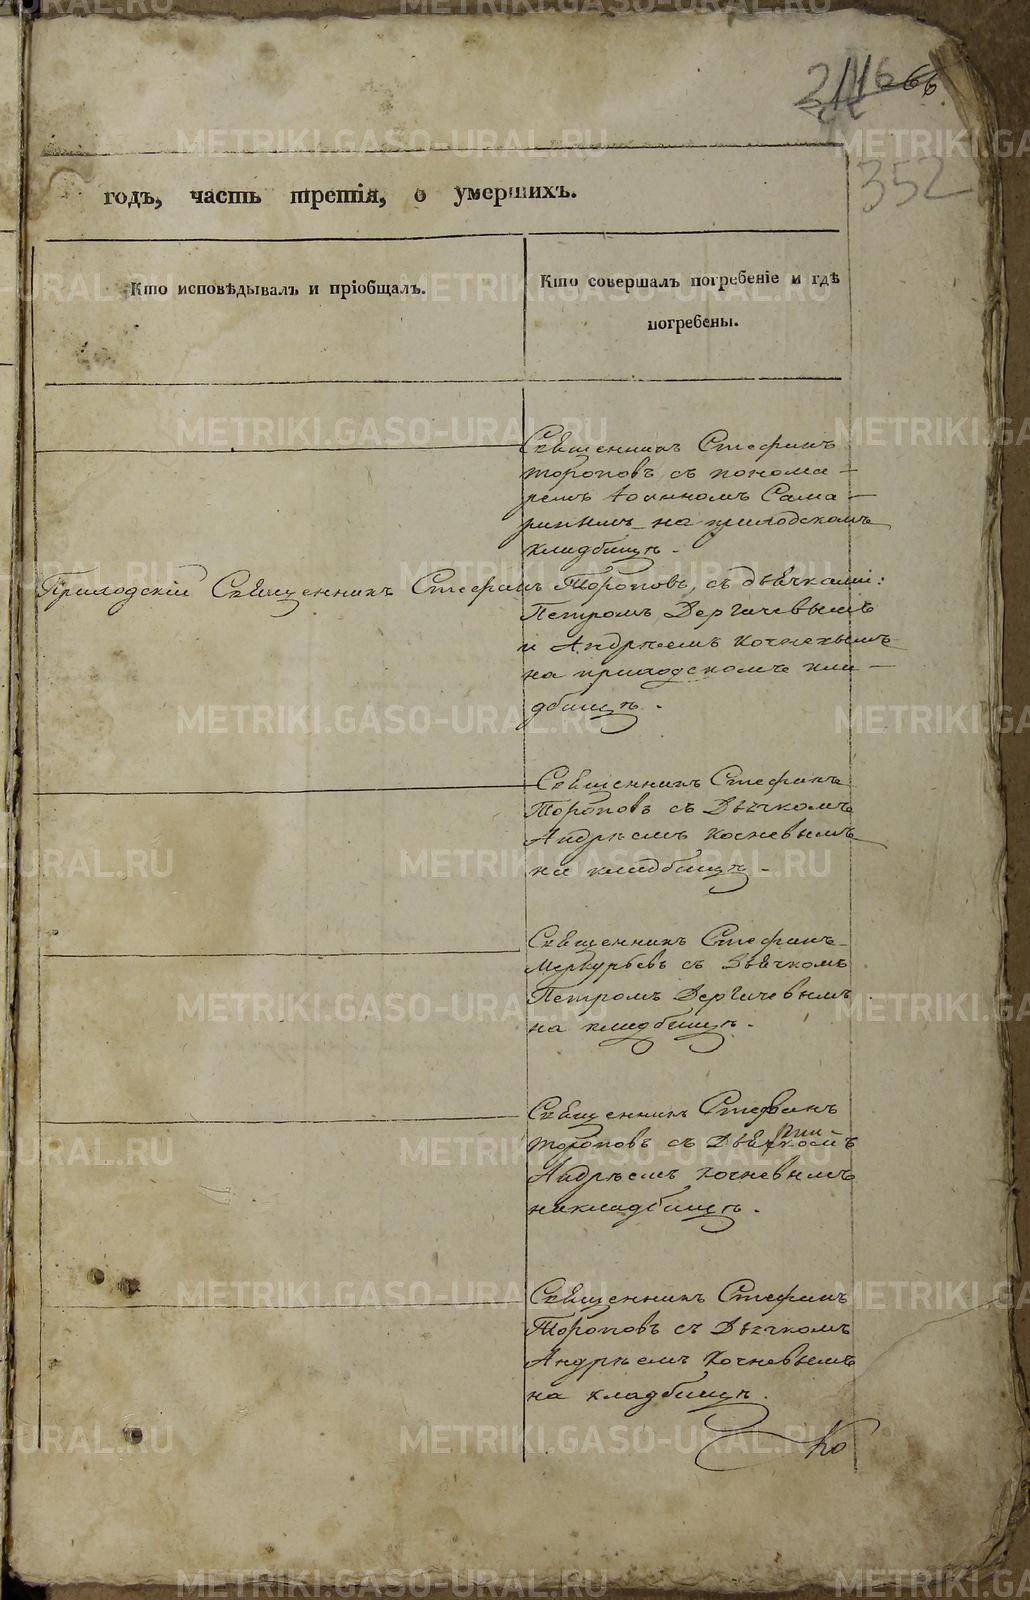 66
352
годъ, часть третія, о умершихъ.
Кто исповѣдывалъ и пріобщалъ.
Кто совершалъ погребеніе и гдѣ
погребены.
Священникъ Стефанъ
Тороповъ съ понома-
ремъ Іоанномъ Сама-
ринымъ на приходскомъ
кладбищѣ.
Приходскій Священникъ Стефанъ Тороповъ, съ дьячками:
Петромъ Дергачевымъ
и Андрѣемъ Кочневымъ
на приходскомъ кла-
дбищѣ.
Священникъ Стефанъ
Тороповъ съ Дьячкомъ
Андрѣемъ Кочневымъ
на кладбищѣ.
Священникъ Стефанъ
Меркурьевъ съ Дьячкомъ
Петромъ Дергачевымъ
на кладбищѣ.
Священникъ Стефанъ
Тороповъ съ Дьячкомъ
Андрѣемъ Кочневымъ
на кладбищѣ.
Священникъ Стефанъ
Тороповъ съ Дьячкомъ
Андрѣемъ Кочневымъ
на кладбищѣ.
Ко
METRIKI.GASO-URAL.RU